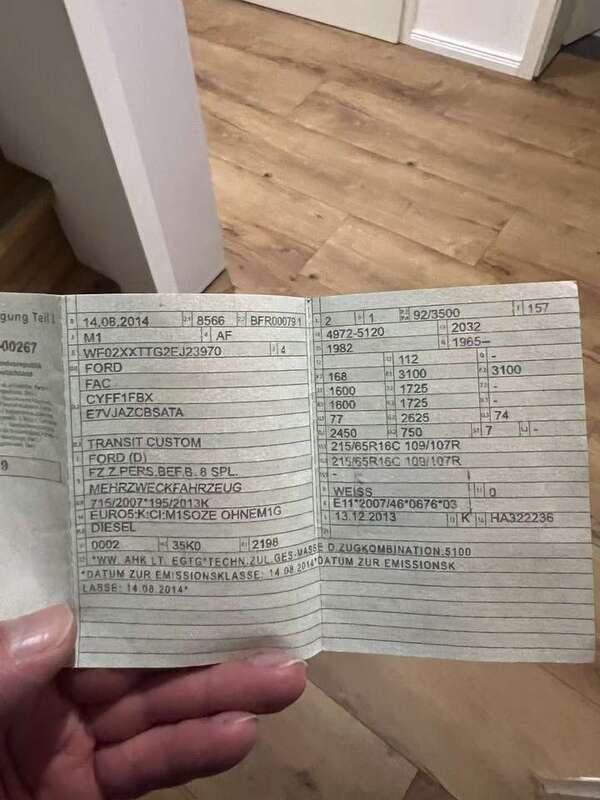 gung Teil I
-00267
9
14.08.2014 8566 BFR000791
M1 AF
WF02XXTTG2EJ23970 4
FORD
FAC
CYFF1FBX
E7VJAZCBSATA
TRANSIT CUSTOM
FORD (D)
FZ.Z.PERS.BEF.B. 8 SPL.
MEHRZWECKFAHRZEUG
715/2007*195/2013K
EURO5:K:CI:M1SOZE OHNEM1G
DIESEL
0002 35K0 2198
2 1 92/3500 157
4972-5120 2032
1982 1965–
112 -
168 3100 3100
1600 1725 -
1600 1725 -
77 2625 74
2450 750 7 -
215/65R16C 109/107R
215/65R16C 109/107R
-
WEISS 0
E11*2007/46*0676*03
13.12.2013 K HA322236
*WW. AHK LT. EGTG*TECHN.ZUL.GES.MASSE D.ZUGKOMBINATION.5100
*DATUM ZUR EMISSIONSKLASSE: 14.08.2014*DATUM ZUR EMISSIONSK
LASSE: 14.08.2014*